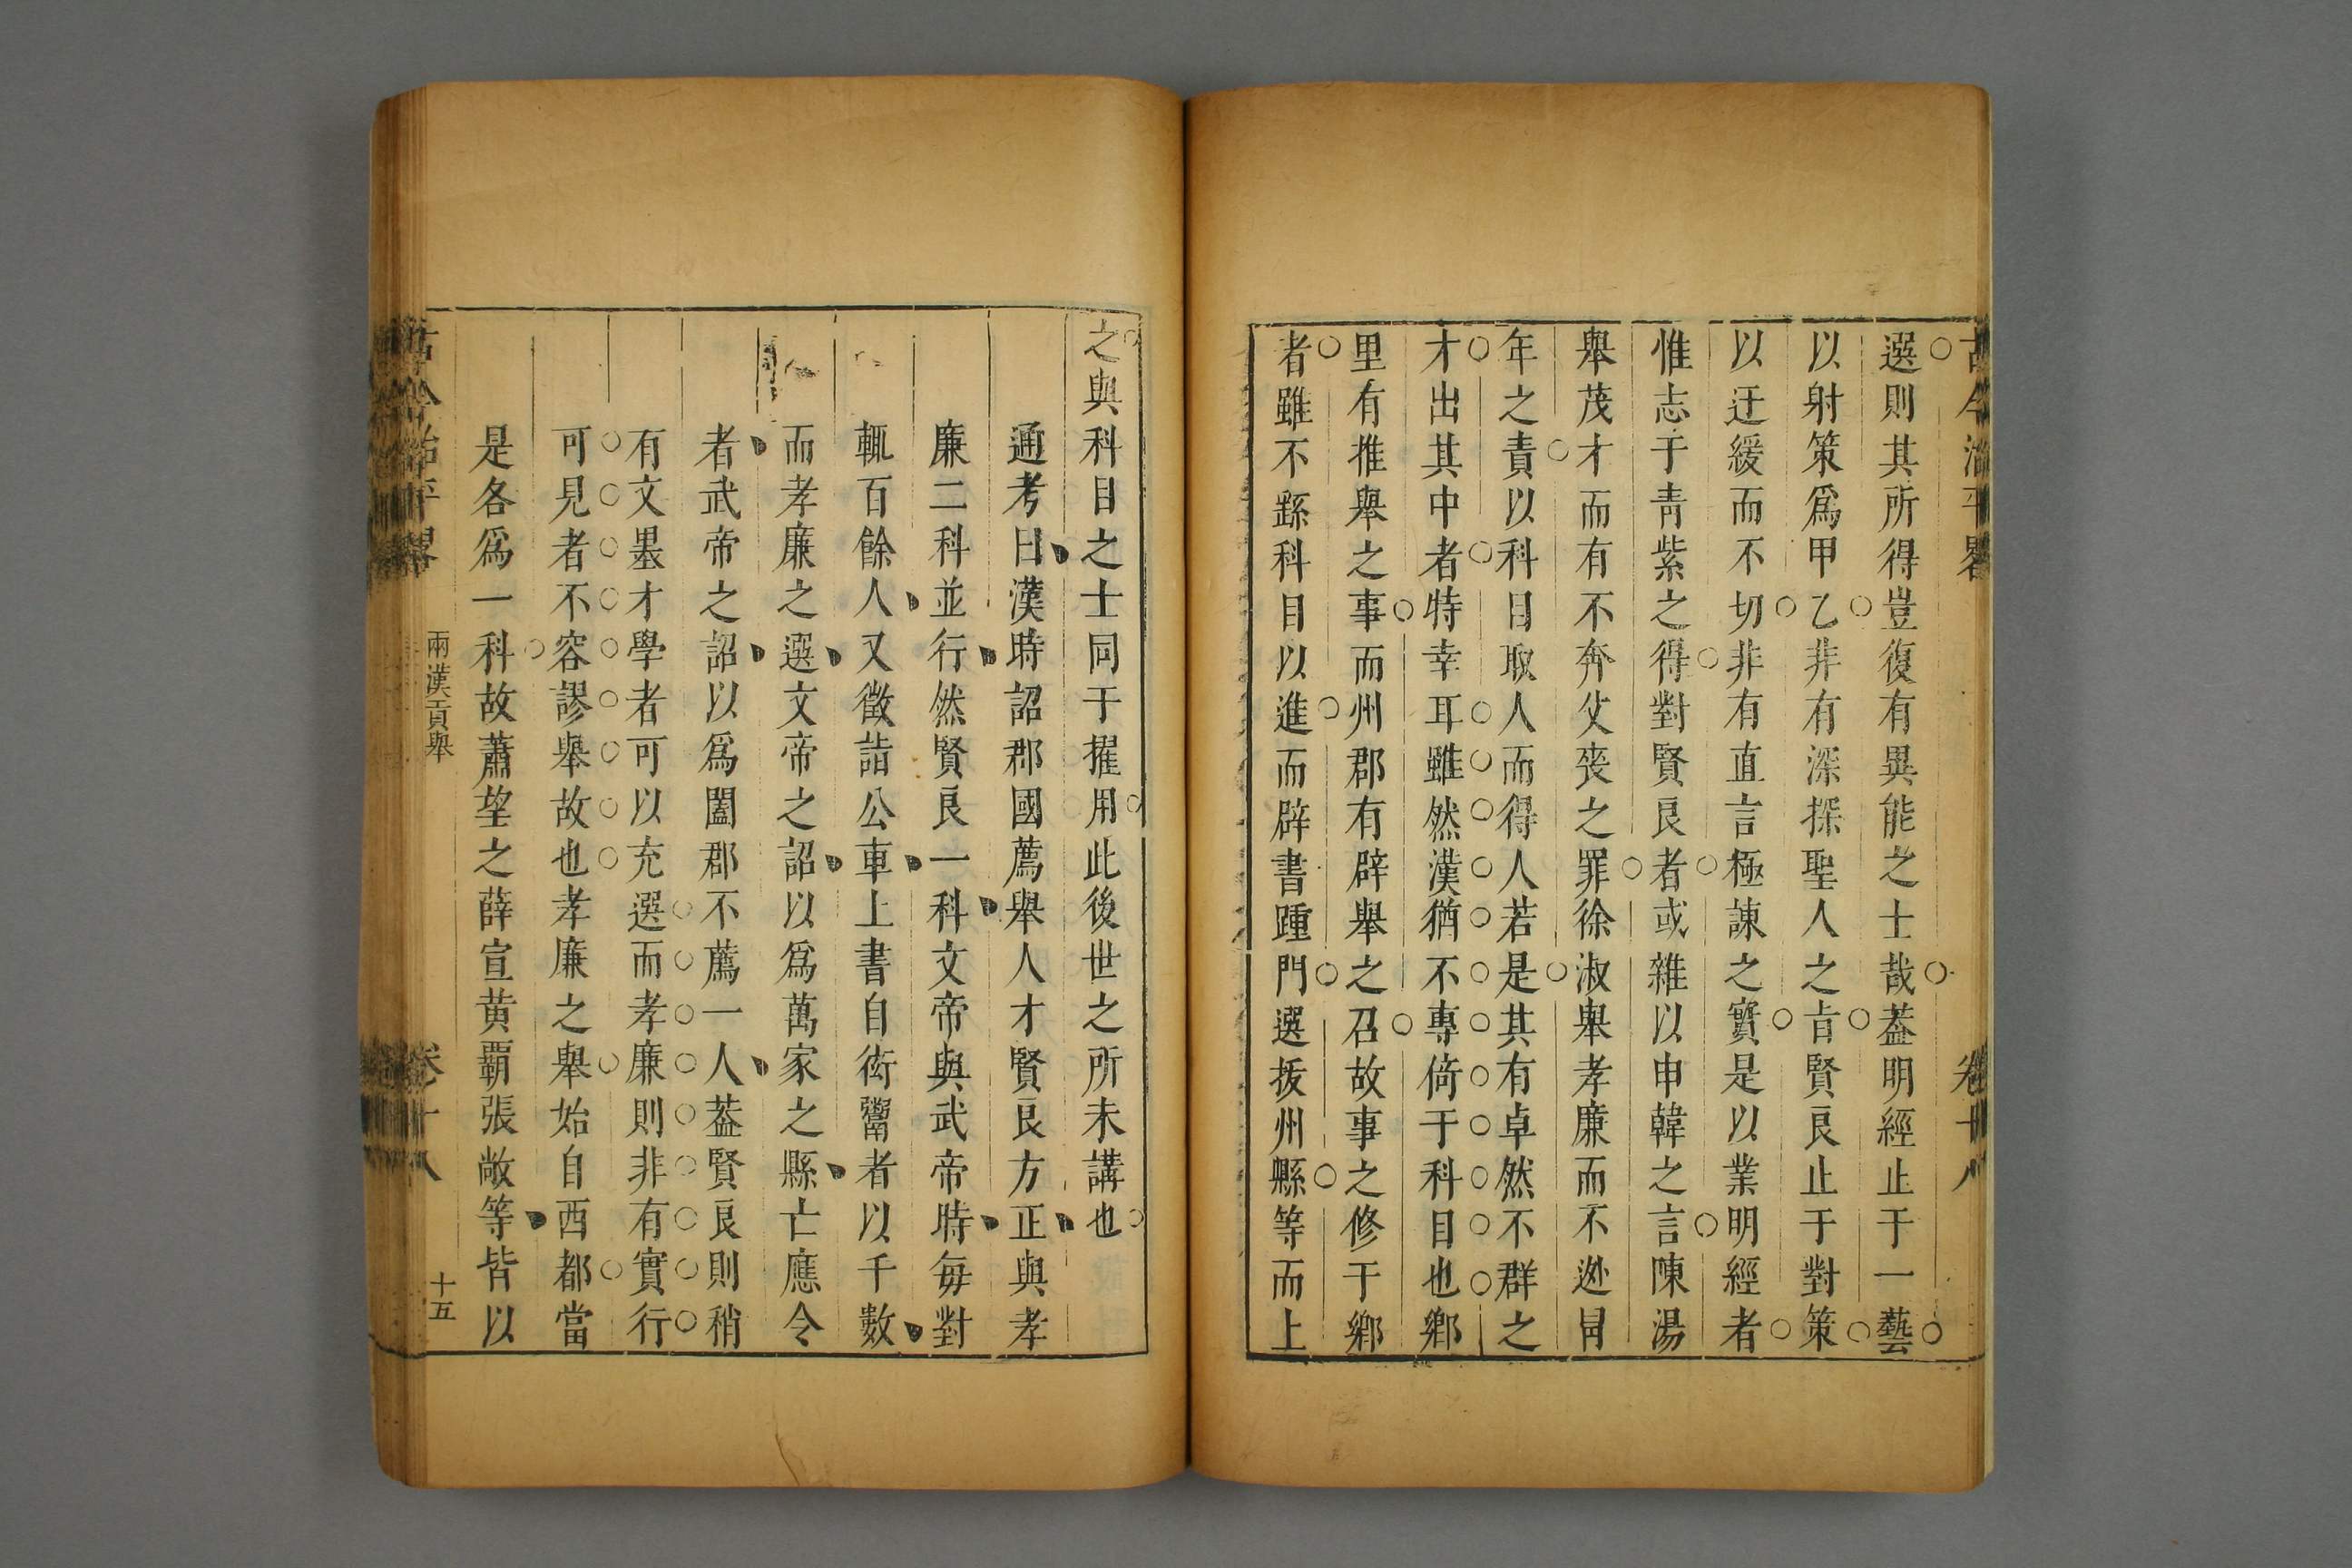 古今治平畧 卷十八
選則其所得豈復有異能之士哉葢明經止于一藝
以射策爲甲乙非有深探聖人之㫖賢良止于對策
以迂緩而不切非有直言極諫之實是以業明經者
惟志于青紫之得對賢良者或雜以申韓之言陳湯
舉茂才而有不奔父䘮之罪徐淑舉孝廉而不逊冐
年之責以科目取人而得人若是其有卓然不群之
才出其中者特幸耳雖然漢猶不專倚于科目也鄉
里有推舉之事而州郡有辟舉之召故事之修于鄉
者雖不繇科目以進而辟書踵門選拔州縣等而上
之與科目之士同于擢用此後世之所未講也
通考曰漢時詔郡國薦舉人才賢良方正與孝
廉二科並行然賢良一科文帝與武帝時每對
輒百餘人又徵詣公車上書自衒鬻者以千數
而孝廉之選文帝之詔以爲萬家之縣亡應令
者武帝之詔以爲闔郡不薦一人葢賢良則稍
有文墨才學者可以充選而孝廉則非有實行
可見者不容謬舉故也孝廉之舉始自西都當
是各爲一科故蕭望之薛宣黄覇張敞等皆以
古今治平畧 兩漢貢舉 卷十八 十五